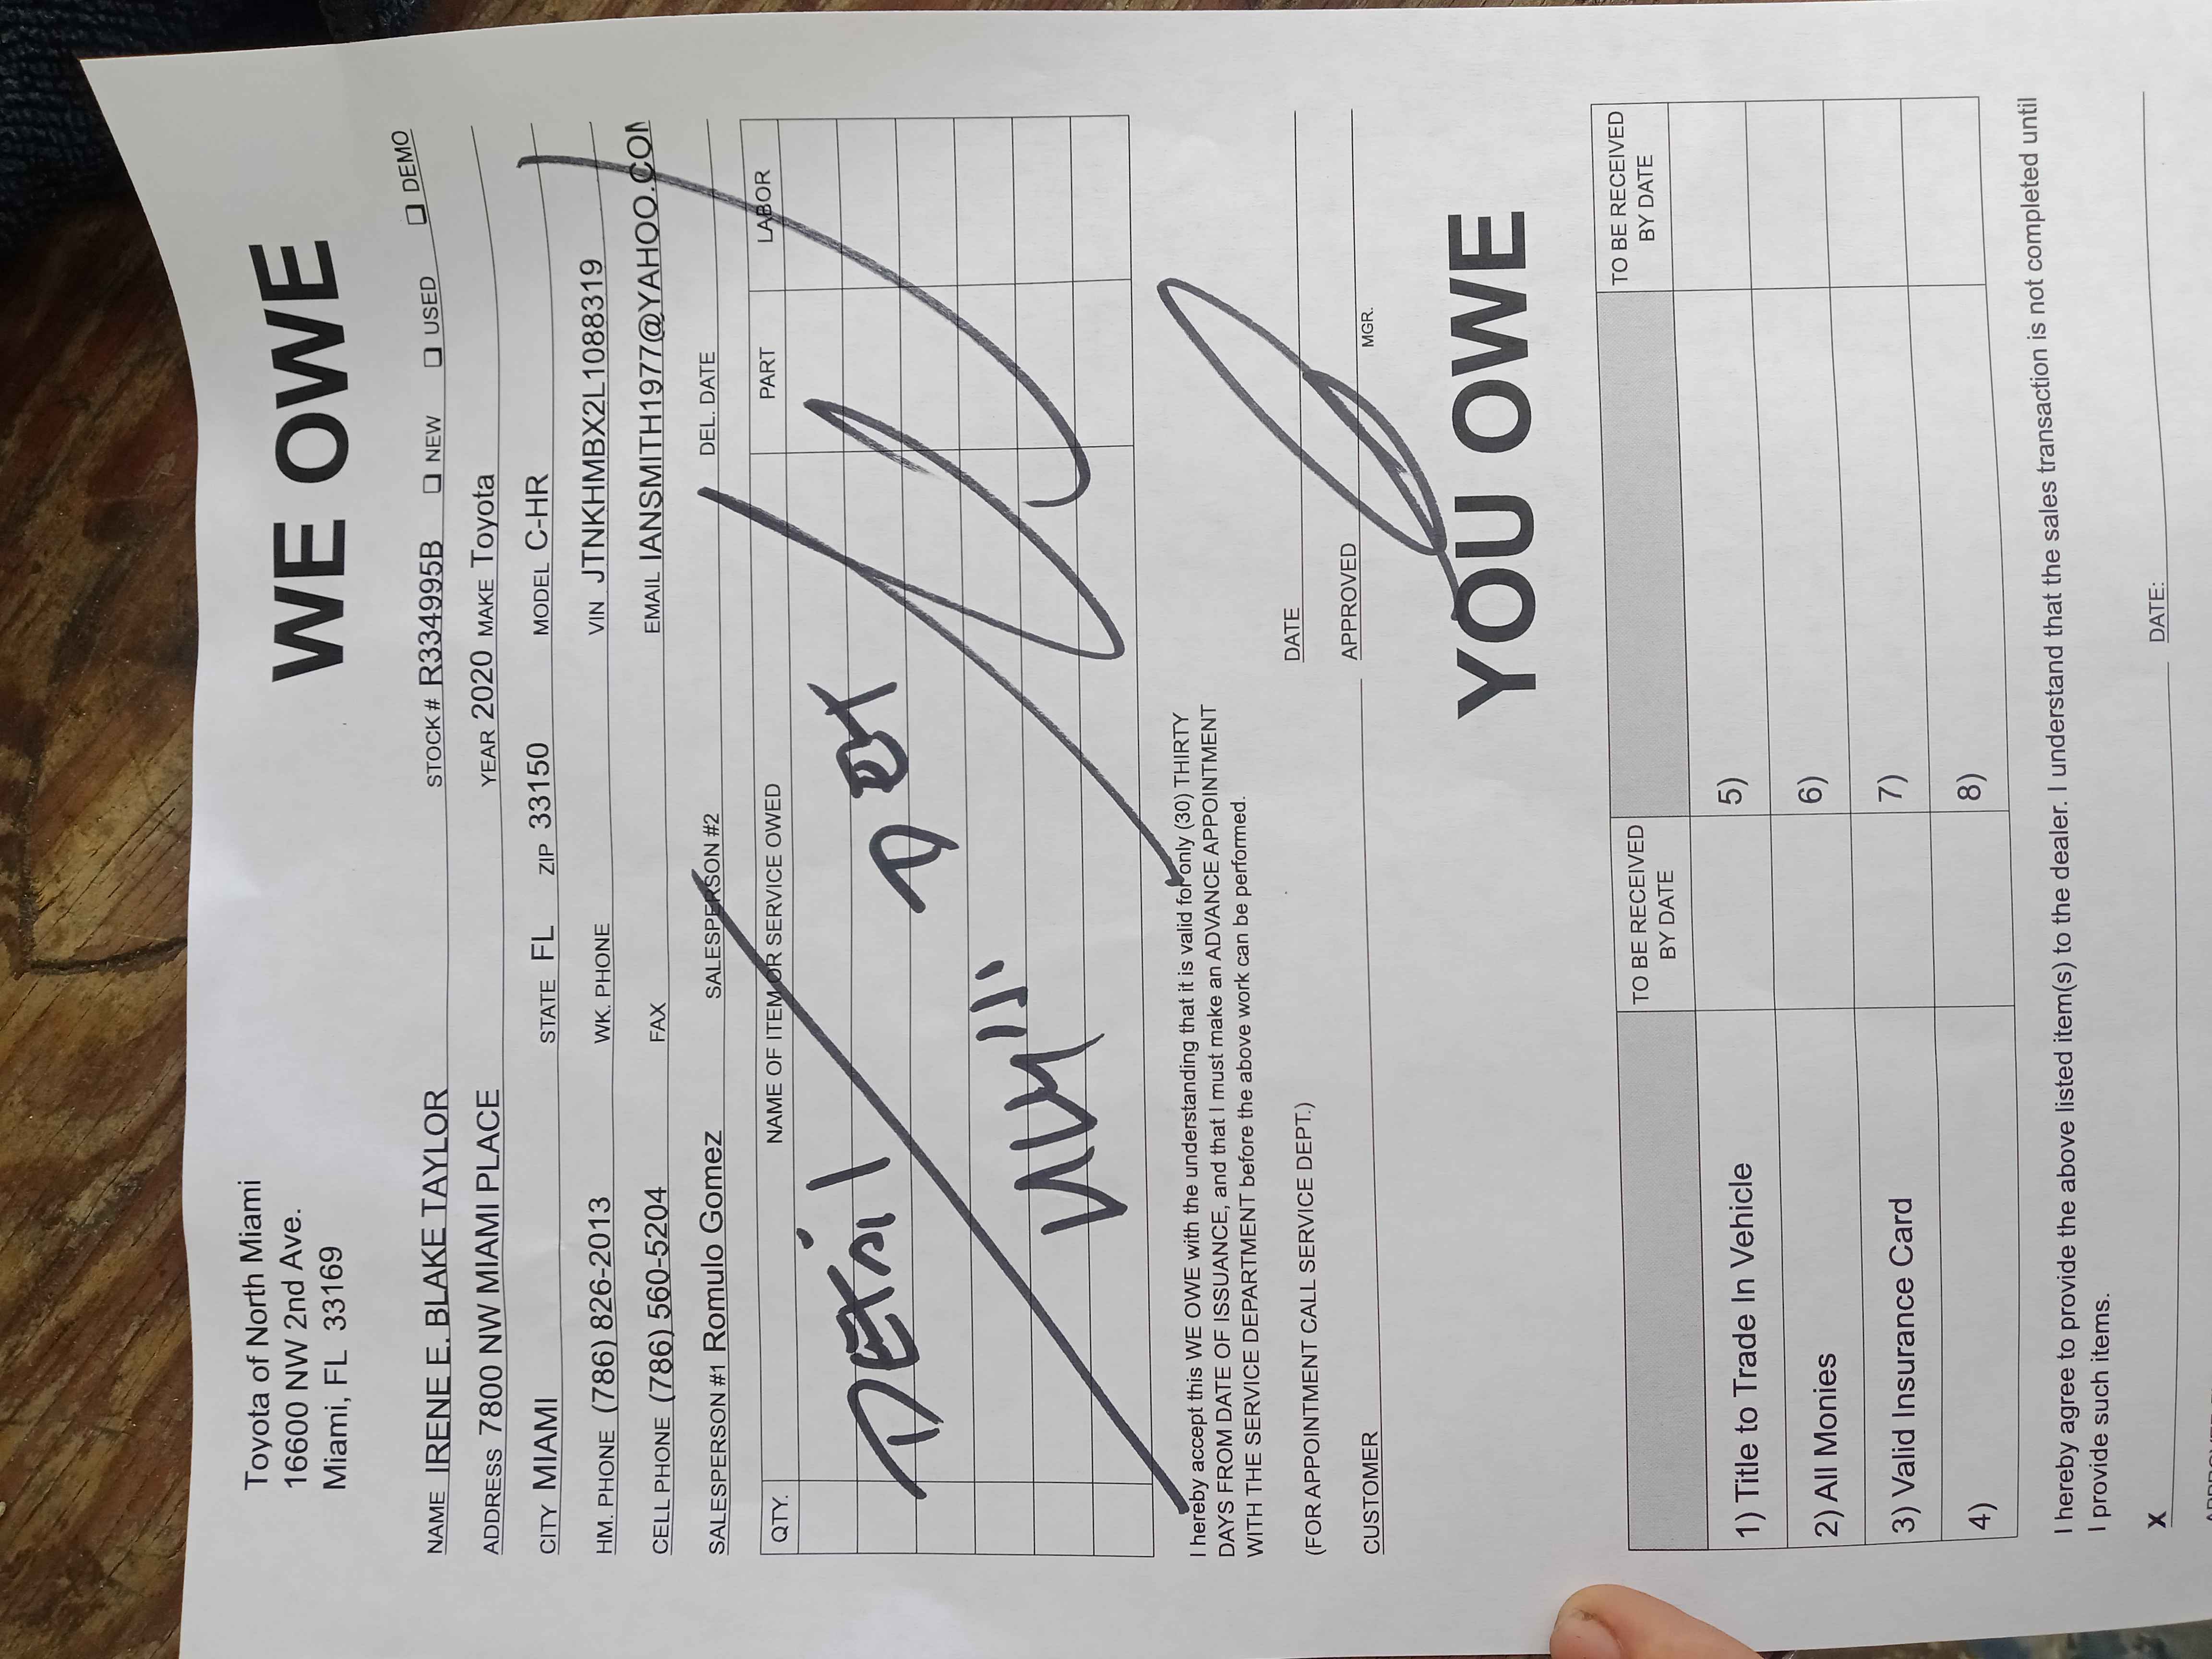 Toyota of North Miami
16600 NW 2nd Ave.
Miami, FL 33169
WE OWE
NAME IRENE E. BLAKE TAYLOR STOCK# R3349995B ❑ NEW ❑ USED ❑ DEMO
ADDRESS 7800 NW MIAMI PLACE YEAR 2020 MAKE Toyota
CITY MIAMI STATE FL ZIP 33150 MODEL C-HR
HM. PHONE (786) 826-2013 WK. PHONE VIN JTNKHMBX2L1088319
CELL PHONE (786) 560-5204 FAX EMAIL IANSMITH1977@YAHOO.COM
SALESPERSON #1 Romulo Gomez SALESPERSON #2 DEL. DATE
QTY. NAME OF ITEM OR SERVICE OWED PART LABOR
DETAil
I hereby accept this WE OWE with the understanding that it is valid for only (30) THIRTY
DAYS FROM DATE OF ISSUANCE, and that I must make an ADVANCE APPOINTMENT
WITH THE SERVICE DEPARTMENT before the above work can be performed.
DATE
(FOR APPOINTMENT CALL SERVICE DEPT.)
CUSTOMER APPROVED
MGR.
YOU OWE
TO BE RECEIVED BY DATE TO BE RECEIVED BY DATE
1) Title to Trade In Vehicle 5)
2) All Monies 6)
3) Valid Insurance Card 7)
4) 8)
I hereby agree to provide the above listed item(s) to the dealer. I understand that the sales transaction is not completed until
I provide such items.
X DATE: